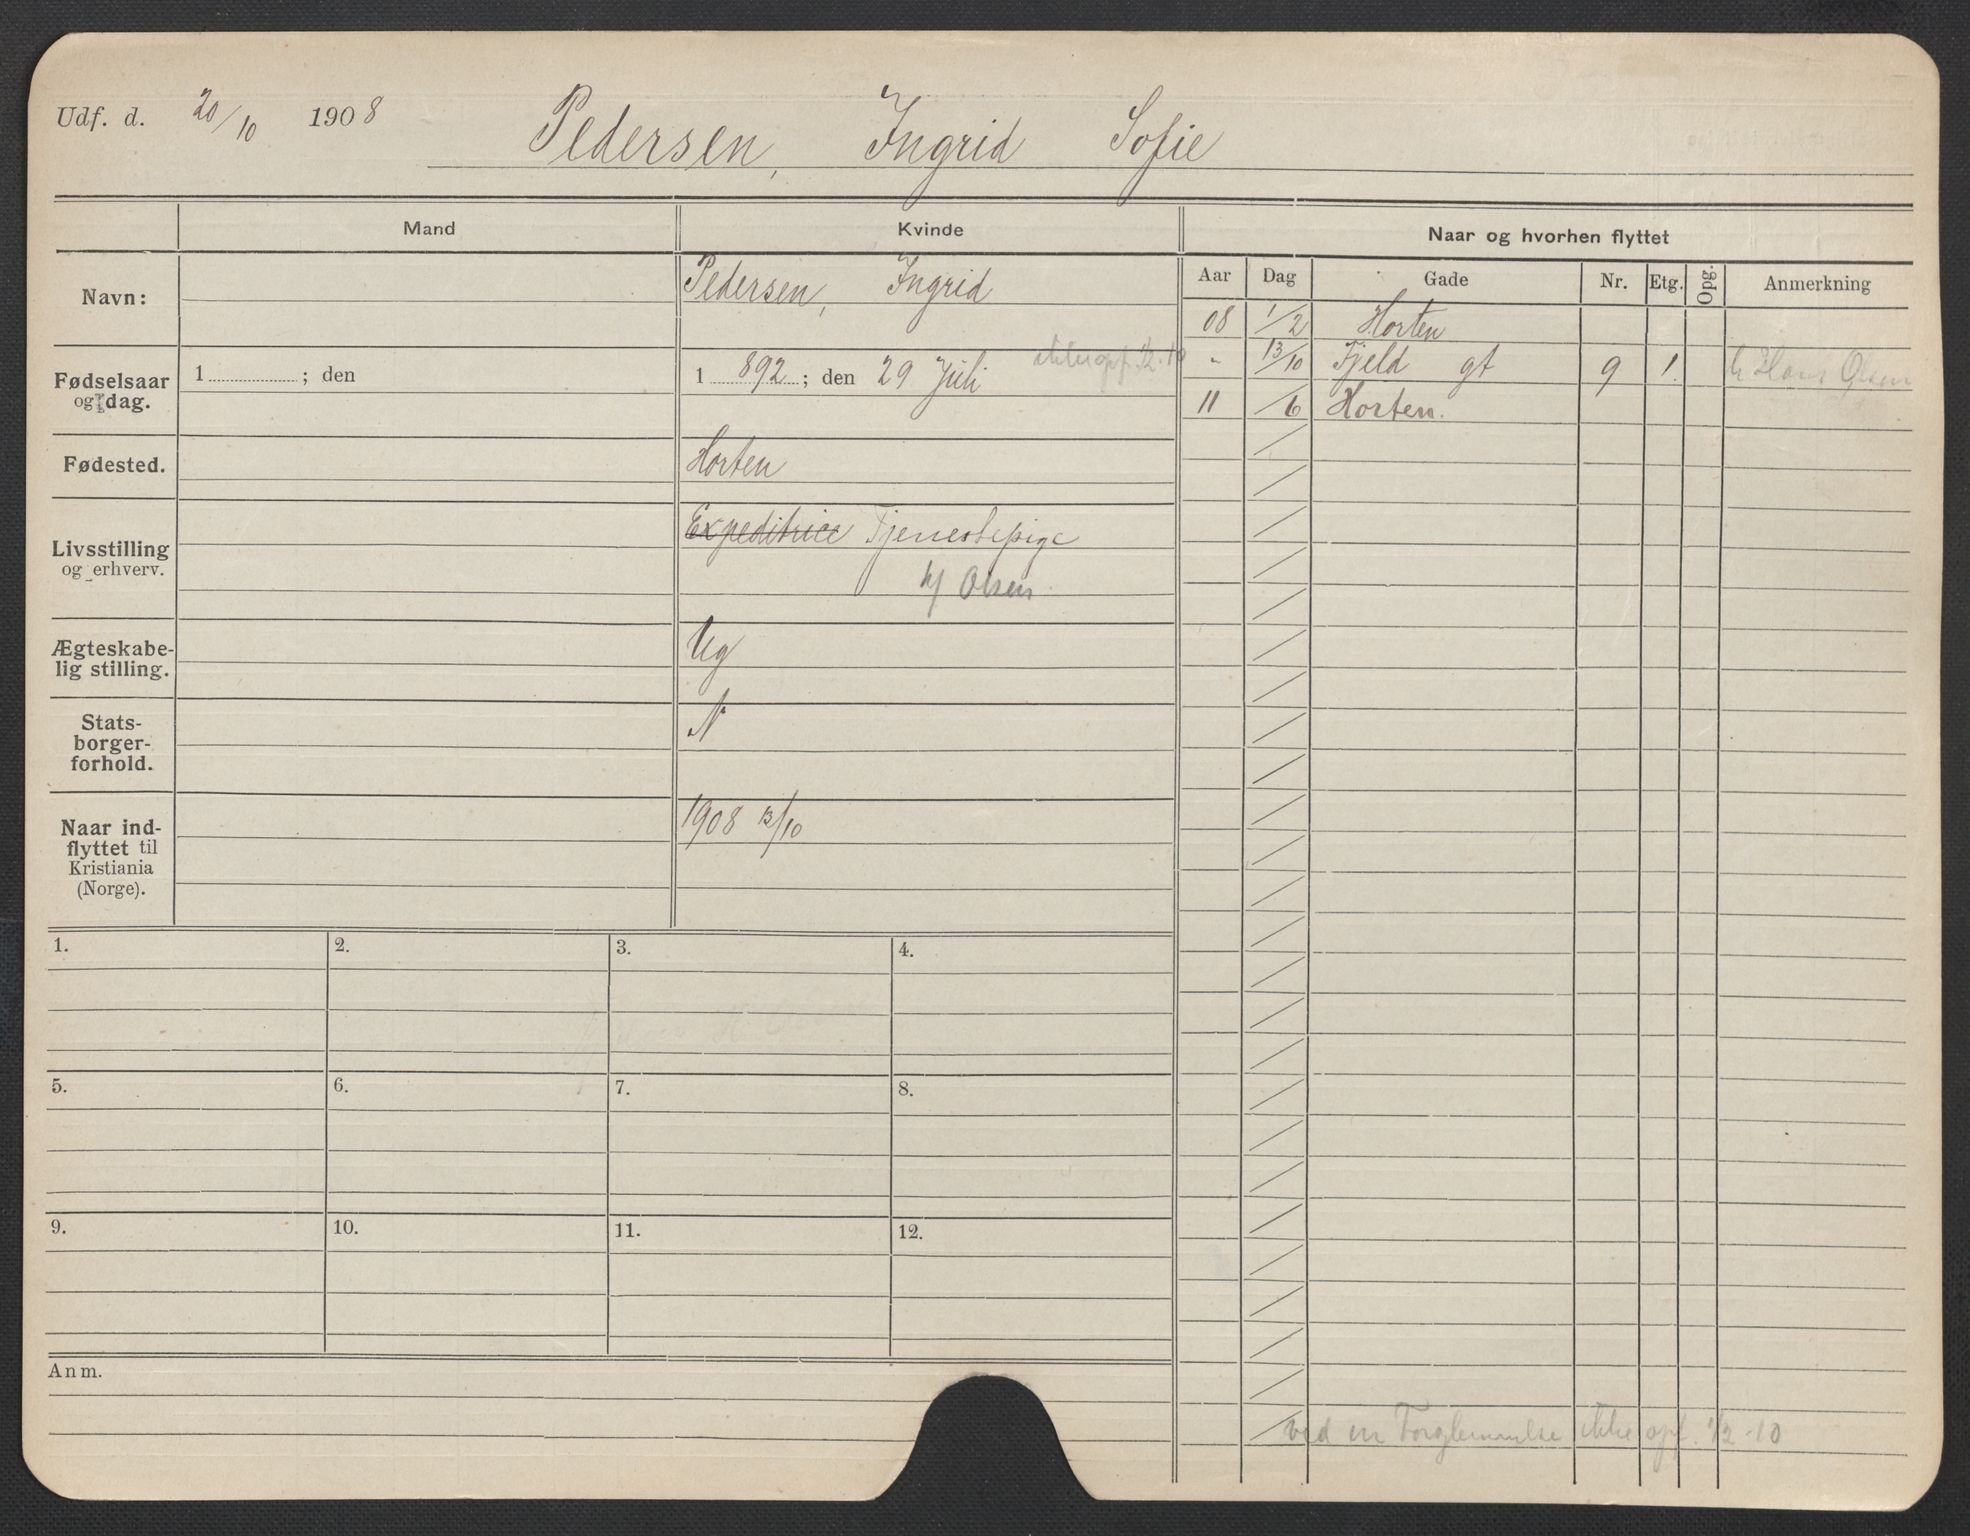 Udf. d. 20/10 1908
Pedersen, Ingrid Sofie
Mand
Kvinde
Naar og hvorhen flyttet
Navn:
Pedersen, Ingrid
Aar Dag Gade Nr. Etg. Opg. Anmerkning
08 1/2 Horten
" 13/10 Fjeld gt 9 1. h Hans Olsen
11 /6 Horten.
Fødselsaar
og dag.
1 ; den
1 892 ; den 29 Juli ikke opf. 1/2-10
Fødested.
Horten
Livsstilling
og erhverv.
Expeditrice Tjenestepige
h/ Olsen
Ægteskabe-
lig stilling.
Ug
Stats-
borger-
forhold.
N
Naar ind-
flyttet til
Kristiania
(Norge).
1908 13/10
1. 2. 3. 4.
5. 6. 7. 8.
9. 10. 11. 12.
Anm.
ved en Forglemmelse ikke opf. 1/2-10